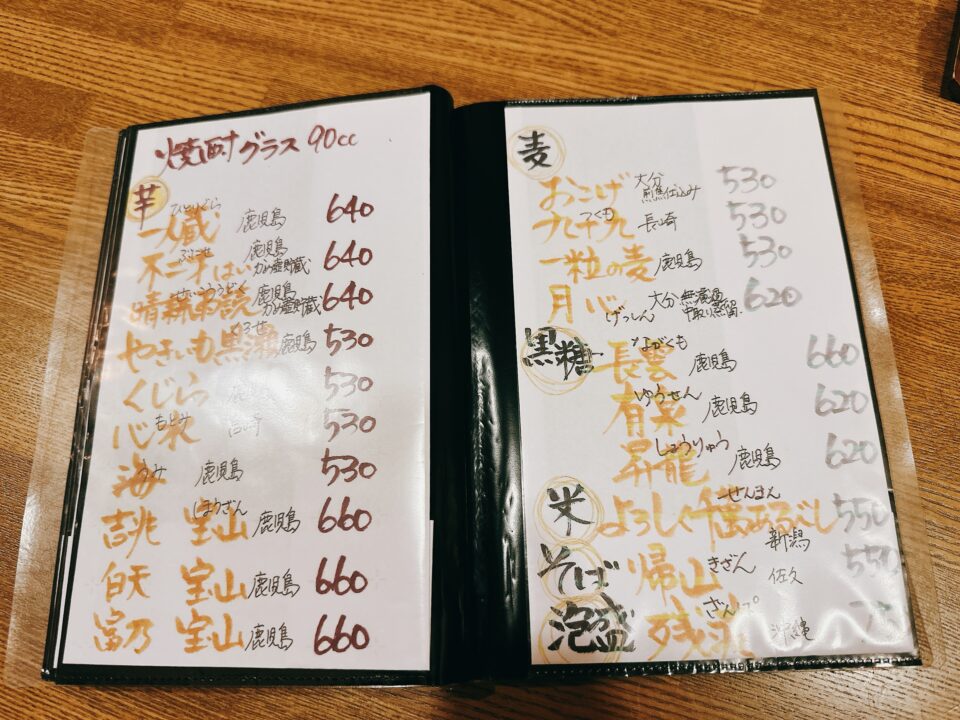 焼酎グラス 90cc
芋
ひとりぐら
一人蔵 鹿児島 640
ぶにせ
不二才はい 鹿児島 かめ壺貯蔵 640
せいこううどく
晴耕雨読 鹿児島 かめ壺貯蔵 640
くろせ
やきいも黒瀬 鹿児島 530
くじら 530
心水 宮崎 530
海 うみ 鹿児島 530
ほうざん
吉兆 宝山 鹿児島 660
白天 宝山 鹿児島 660
富乃 宝山 鹿児島 660
麦
おこげ 大分 焙煎仕込み 530
つくも
九十九 長崎 530
一粒の麦 鹿児島 530
月心 げっしん 大分 無濾過 中取り蒸留 620
黒糖
ながくも
長雲 鹿児島 660
ゆうせん
有泉 鹿児島 620
しょうりゅう
昇龍 鹿児島 620
米
せんまん
よろしく千萬あるべし 新潟 550
そば
帰山 きざん 佐久 550
泡盛
ざんぱ
残波 沖縄